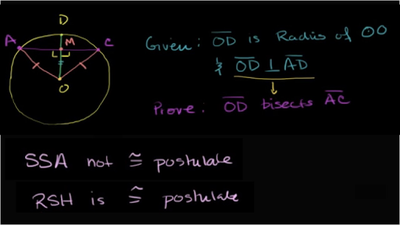 D
A
M
C
O
Given: OD is Radius of ⊙O
& OD ⊥ AD
Prove: OD bisects AC
SSA not ≅ postulate
RSH is ≅ postulate